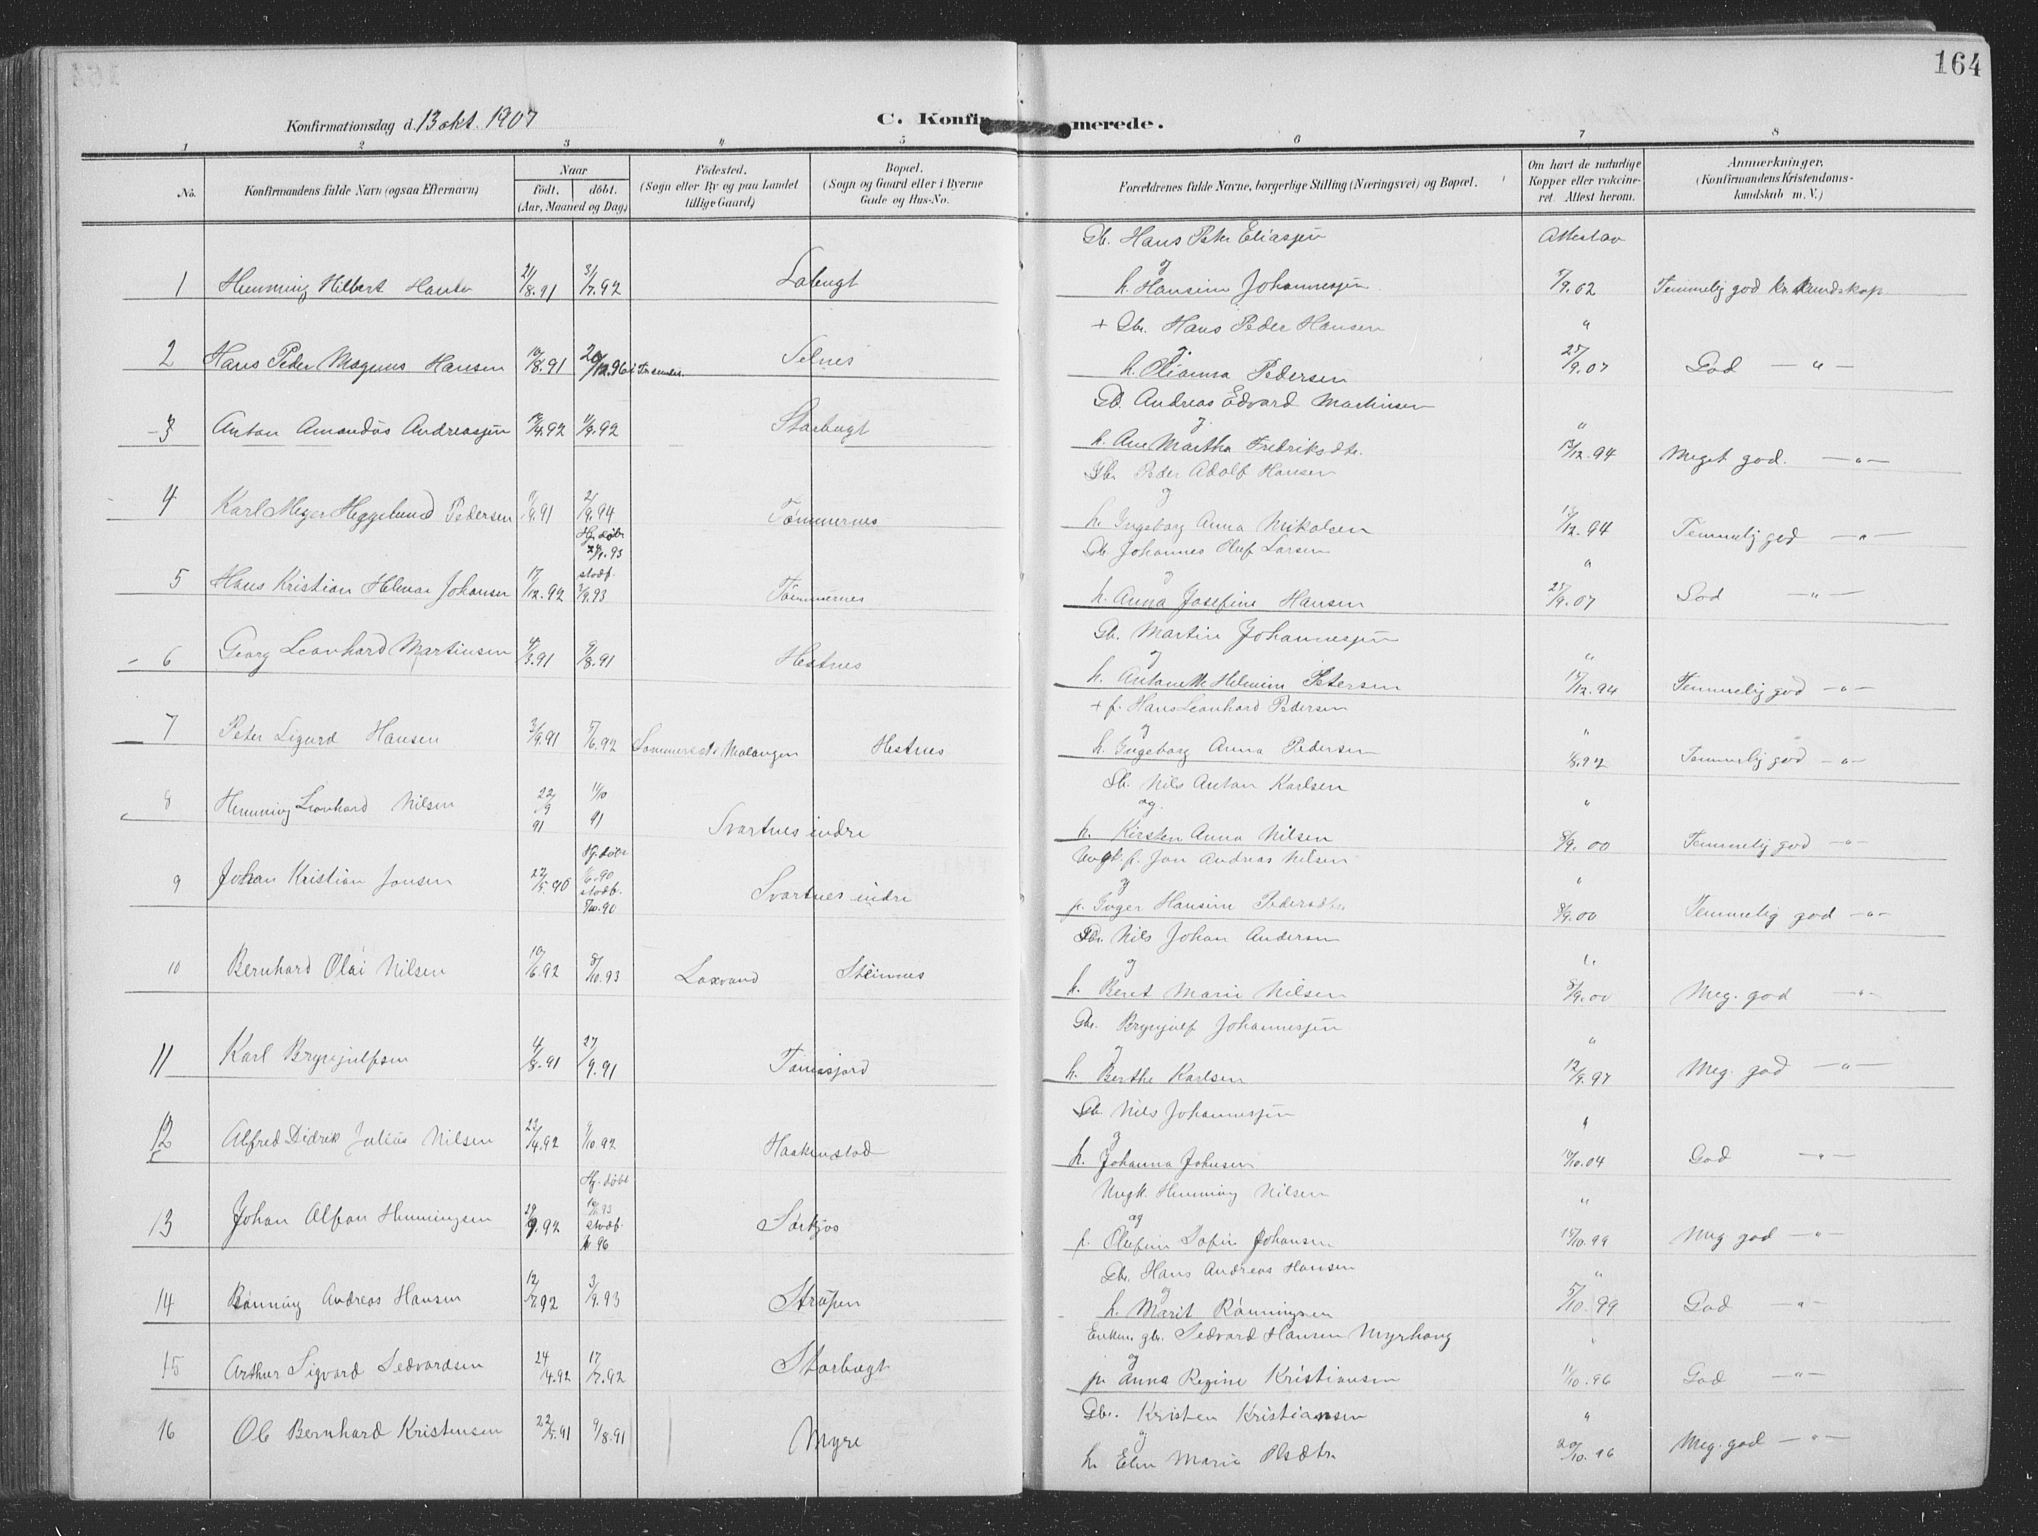 164
Konfirmationsdag d. 13 okt. 1907
C. Konfir merede.
1 2 3 4 5 6 7 8
No.
Konfirmandens fulde Navn (ogsaa Efternavn)
Naar
født. døbt.
(Aar, Maaned og Dag)
Fødested.
(Sogn eller By og paa Landet
tillige Gaard)
Bopæl.
(Sogn og Gaard eller i Byerne
Gade og Hus-No.
Forældrenes fulde Navne, borgerlige Stilling (Næringsvei) og Bopæl.
Om havt de naturlige
Kopper eller vakcine-
ret. Attest herom.
Anmerkninger.
(Konfirmandens Kristendoms-
kundskab m. V.)
Gb. Hans Peter Eliasjen Attest av
1 Henning Hilbert 21/8.91 3/7.92 og h. Hansine Johannesjen 7/9.02 Temmelig god kr. kundskap
+ Gbr. Hans Peder Hansen "
2 Hans Peder Magnus Hansen 10/8.91 20/12.96 Selnes og h. Olianna Pedersen 25/9.07 God — " —
Gb. Andreas Edvard Martinsen
3 Anton Amandus Andreasjen 4.92 92 Storbugt og h. Ane Martha Fredriksdtr. 13/12.94 Meget god. — " —
Gbr. Peder Adolf Hansen
4 Karl Meyer Heggelund Pedersen 91 2/9.94 Tømmernes og h. Ingeborg Anna Nikolsen 12.94 Temmelig god — " —
Hj. døbt 93
Gb. Johannes Oluf Larsen "
5 Hans Kristian Helmar Johansen 17/12.92 stadf. 93 Tømmernes og h. Anna Josefine Hansen 25/9.07 God — " —
Gb. Martin Johannesjen "
6 Georg Leonhard Martinsen 91 9/8.91 Hestnes og h. Helmine Petersen 12.94 Temmelig god — " —
+ f. Hans Leonhard Pedersen "
7 Peter Sigurd Hansen 3/9.91 5/6.92 Malangen Hestnes og h. Ingeborg Anna Pedersen 8.92 Temmelig god — " —
Gb. Nils Anton Karlsen "
8 Henning Leonhard Nilsen 22/9 91 11/10 91 Svartnes indre og h. Kirsten Anna Nilsen 8/9.00 Temmelig god — " —
Ungk. f. Jon Andreas Nilsen "
9 Johan Kristian Jonsen 22/5.90 Hj. døbt 6.90 stadf. 10.90 Svartnes indre og p. Inger Hansine Pedersdtr 8/9.00 Temmelig god — " —
Gbr. Nils Johan Andersen "
10 Bernhard Olai Nilsen 10/6.92 8/10.93 Laxvand Steinnes og h. Beret Marie Nilsen 9.00 Meg. god — " —
Gbr. Brynjulf Johannesjen "
11 Karl Brynjulfsen 4/8.91 27/9.91 Tomasjord og h. Berthe Karlsen 12/9.97 Meg. god — " —
Gb. Nils Johannesjen "
12 Alfred Didrik Julius Nilsen 23/4.92 9/10.92 Haakenstad og h. Johanna Johnsen 10.04 God — " —
Hj. døbt
Ungk. Henning Nilsen "
13 Johan Alfon Henningsen 9.92 93 stadf. 96 Sørkjos og p. Olufine Sofie Johansen 10.99 Meg god — " —
Gbr. Hans Andreas Hansen "
14 Rønning Andreas Hansen 12/7.92 3/9.93 Strupen og h. Marit Rønningsen 5/10.99 God — " —
Enkem. gbr. Sedvard Hansen Myrhaug
15 Arthur Sigvard Sedvardsen 24/4.92 17/7.92 Storbugt og p. Anna Regine Kristiansen 11/10.96 God — " —
Gbr. Kristen Kristiansen "
16 Ole Bernhard Kristensen 22/5.91 9/8.91 Myre og h. Elen Marie Olsdtr. 20/10.96 Meg. god — " —